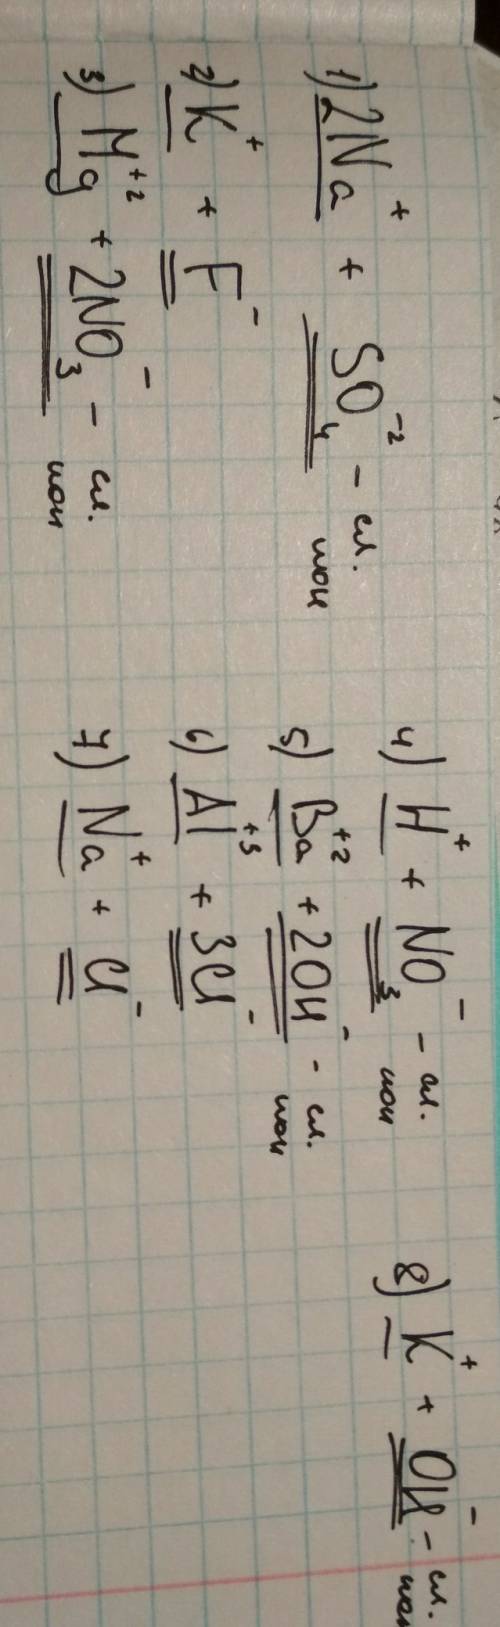 1) 2Na⁺ + SO₄⁻² – сл.
ион
2) K⁺ + F⁻
3) Mg⁺² + 2NO₃⁻ – сл.
ион
4) H⁺ + NO₃⁻ – сл.
ион
5) Ba⁺² + 2OH⁻ – сл.
ион
6) Al⁺³ + 3Cl⁻
7) Na⁺ + Cl⁻
8) K⁺ + OH⁻ – сл.
ион